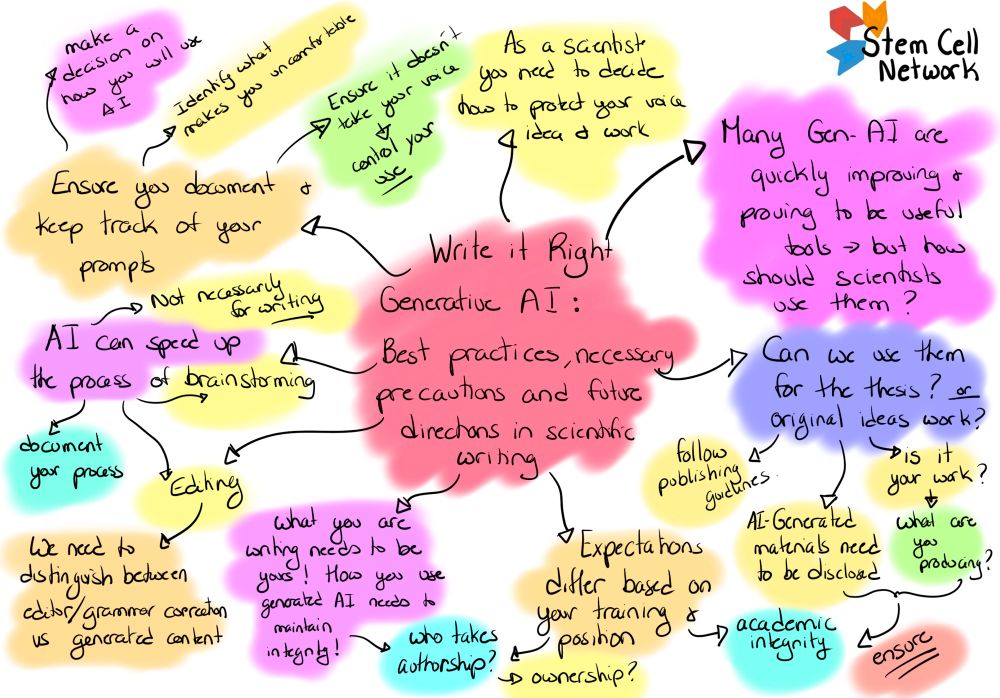 make a
decision on
how you will use
AI
Identify what
makes you uncomfortable
Ensure it doesn't
take your voice
control your
use
As a scientist
you need to decide
how to protect your voice
idea & work
Stem Cell
Network
Many Gen-AI are
quickly improving &
proving to be useful
tools → but how
should scientists
use them?
Ensure you document &
keep track of your
prompts
Write it Right
Generative AI:
Best practices, necessary
precautions and future
directions in scientific
writing
Not necessarily
for writing
AI can speed up
the process of brainstorming
document
your process
Editing
We need to
distinguish between
editor/grammar correction
vs generated content
what you are
writing needs to be
yours! How you use
generated AI needs to
maintain
integrity!
who takes
authorship?
Expectations
differ based on
your training &
position
ownership?
Can we use them
for the thesis? or
original ideas work?
follow
publishing
guidelines.
AI-Generated
materials need
to be disclosed
is it
your work?
what are
you
producing?
academic
integrity
ensure